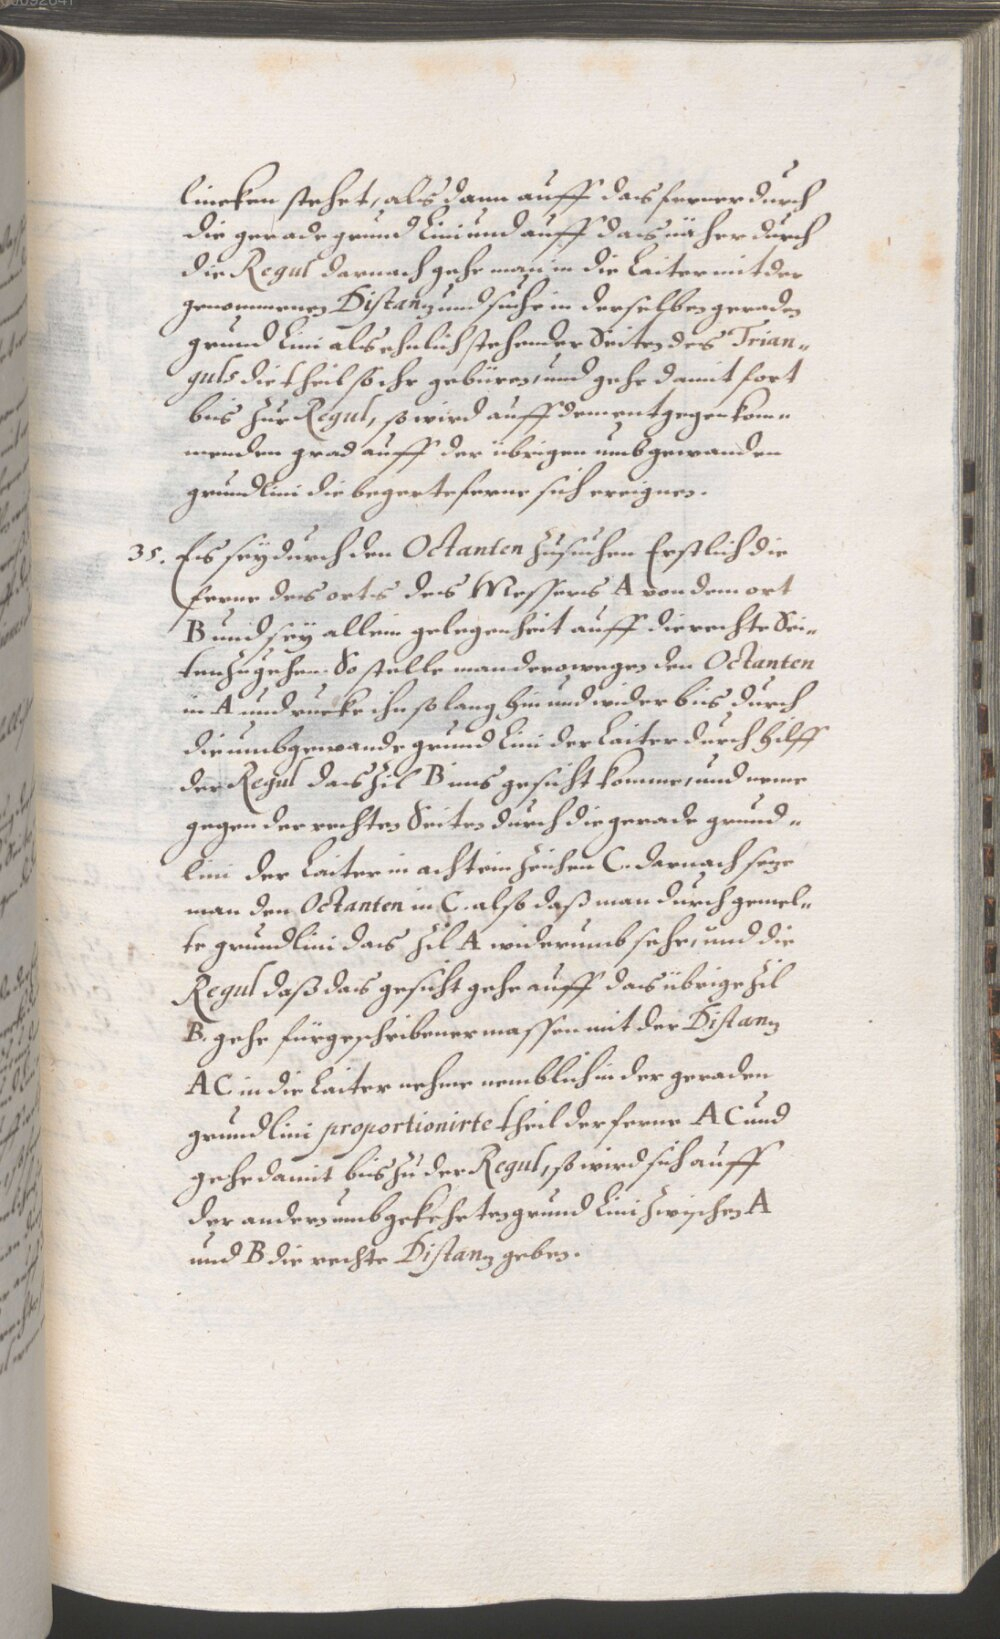 lincken stehet, als dann auff das ferner durch
die gerade grund Lini und auff das näher durch
die Regul darnach gehe man in die Laiter mit der
genommenen Distanz und suche in derselben geraden
grund Lini als ehnlich stehender Seiten des Trian-
guls die theil so ihr gebüren, und gehe damit fort
bis zur Regul, so wird auff dem entgegen kom-
menden grad auff der übrigen umbgewanden
grundlini die begerte ferne sich ereignen.
35. Es sey durch den Octanten zusuchen Erstlich die
ferne des orts des Messers A von dem ort
B und sey allein gelegenheit auff die rechte Sei-
ten zugehen. So stelle man derowegen den Octanten
in A und rucke ihn so lang hin und wider bis durch
die umbgewande grund Lini der Laiter durch hilff
der Regul das Zil B ins gesicht komme, und neme
gegen der rechten Seiten durch die gerade grund-
lini der Laiter in acht ein Zeichen C. darnach seze
man den Octanten in C. also daß man durch gemel-
te grundlini das Zil A widerumb sehe, und die
Regul daß das gesicht gehe auff das übrige Zil
B. gehe fürgeschribener massen mit der Distanz
AC in die Laiter nehme nemblich in der geraden
grundlini proportionirte theil der ferne AC und
gehe damit bis zu der Regul, so wird sich auff
der andern umbgekehrten grund Lini zwischen A
und B die rechte Distanz geben.